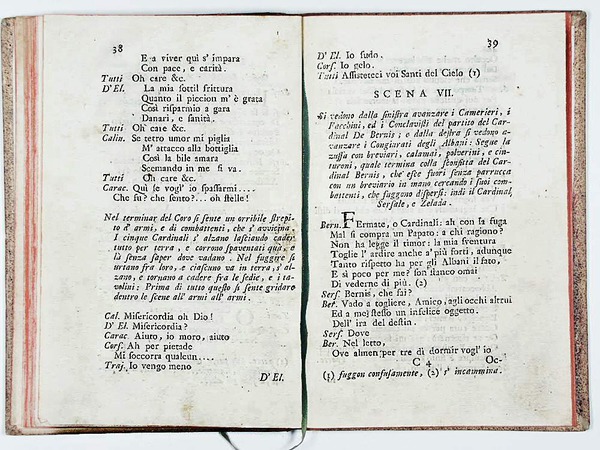 38
E a viver quì s' impara
Con pace, e carità.
Tutti Oh care &c.
D'El. La mia sottil frittura
Quanto il piccion m' è grata
Così risparmio a gara
Danari, e sanità.
Tutti Oh care &c.
Calin. Se tetro umor mi piglia
M' attacco alla bottiglia
Così la bile amara
Scemando in me si va.
Tutti Oh care &c.
Carac. Quì se vogl' io spassarmi....
Che fu? che sento?... oh stelle!
Nel terminar del Coro si sente un orribile strepi-
to d' armi, e di combattenti, che s' avvicina.
I cinque Cardinali s' alzano lasciando cader
tutto per terra, e corrono spaventati quà, e
là senza saper dove vadano. Nel fuggire si
urtano fra loro, e ciascuno va in terra, s' al-
zano, e tornano a cadere fra le sedie, e i ta-
volini: Prima di tutto questo si sente gridare
dentro le scene all' armi all' armi.
Cal. Misericordia oh Dio!
D' El. Misericordia?
Carac. Aiuto, io moro, aiuto
Cors. Ah per pietade
Mi soccorra qualcun....
Traj. Io vengo meno
D' El.
39
D' El. Io sudo.
Cors. Io gelo.
Tutti Assisteteci voi Santi del Cielo (1)
SCENA VII.
Si vedono dalla sinistra avanzare i Camerieri, i
Facchini, ed i Conclavisti del partito del Car-
dinal De Bernis; e dalla destra si vedono a-
vanzare i Congiurati degli Albani: Segue la
zuffa con breviari, calamai, polverini, e cin-
turoni, quale termina colla sconfitta del Car-
dinal Bernis, che esce fuori senza parrucca
con un breviario in mano cercando i suoi com-
battenti, che fuggono dispersi: indi il Cardinal
Sersale, e Zelada.
Bern. Fermate, o Cardinali: ah con la fuga
Mal si compra un Papato: a chi ragiono?
Non ha legge il timor: la mia sventura
Toglie l' ardire anche a' più forti, adunque
Tanto rispetto ha per gli Albani il fato,
E sì poco per me? son stanco omai
Di vederne di più. (2)
Sers. Bernis, che fai?
Ber. Vado a togliere, Amico, agli occhi altrui
Ed a me stesso un infelice oggetto.
Dell' ira del destin.
Sers. Dove
Ber. Nel letto,
Ove almen per tre dì dormir vogl' io
C 4 Oc-
(1) fuggon confusamente, (2) s' incammina.